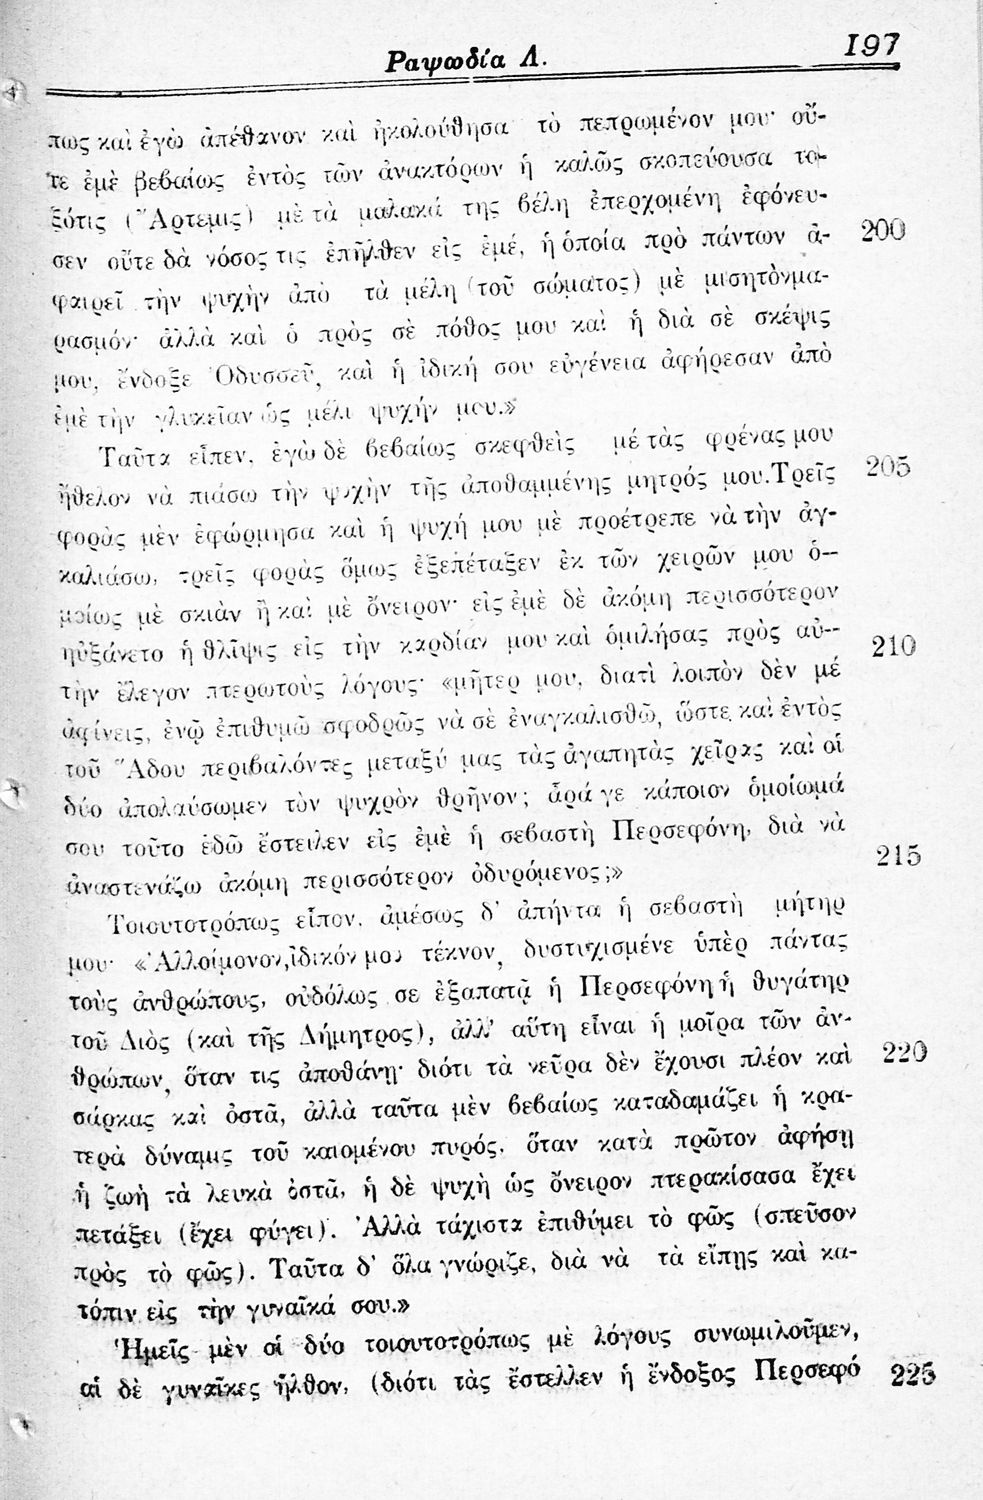 Ραψωδία Λ. 197
πως καὶ ἐγὼ ἀπέθανον καὶ ἠκολούθησα τὸ πεπρωμένον μου· οὔ-
τε ἐμὲ βεβαίως ἐντὸς τῶν ἀνακτόρων ἡ καλῶς σκοπεύουσα το-
ξότις (Ἄρτεμις) μὲ τὰ μαλακά της βέλη ἐπερχομένη ἐφόνευ-
σεν οὔτε δὰ νόσος τις ἐπῆλθεν εἰς ἐμέ, ἡ ὁποία πρὸ πάντων ἀ- 200
φαιρεῖ τὴν ψυχὴν ἀπὸ τὰ μέλη (τοῦ σώματος) μὲ μισητὸνμα-
ρασμόν· ἀλλὰ καὶ ὁ πρὸς σὲ πόθος μου καὶ ἡ διὰ σὲ σκέψις
μου, ἔνδοξε Ὀδυσσεῦ, καὶ ἡ ἰδική σου εὐγένεια ἀφήρεσαν ἀπὸ
ἐμὲ τὴν γλυκεῖαν ὡς μέλι ψυχήν μου.»
Ταῦτα εἶπεν, ἐγὼ δὲ βεβαίως σκεφθεὶς μέ τὰς φρένας μου 205
ἤθελον νὰ πιάσω τὴν ψυχὴν τῆς ἀποθαμμένης μητρός μου.Τρεῖς
φορὰς μὲν ἐφώρμησα καὶ ἡ ψυχή μου μὲ προέτρεπε νὰ τὴν ἀγ-
καλιάσω, τρεῖς φορὰς ὅμως ἐξεπέταξεν ἐκ τῶν χειρῶν μου ὁ-
μοίως μὲ σκιὰν ἢ καὶ μὲ ὄνειρον· εἰς ἐμὲ δὲ ἀκόμη περισσότερον
ηὐξάνετο ἡ θλῖψις εἰς τὴν καρδίαν μου καὶ ὁμιλήσας πρὸς αὐ- 210
τὴν ἔλεγον πτερωτοὺς λόγους· «μῆτερ μου, διατὶ λοιπὸν δὲν μέ
ἀφίνεις, ἐνῷ ἐπιθυμῶ σφοδρῶς νὰ σὲ ἐναγκαλισθῶ, ὥστε καὶ ἐντὸς
τοῦ Ἅδου περιβαλόντες μεταξύ μας τὰς ἀγαπητὰς χεῖρας καὶ οἱ
δύο ἀπολαύσωμεν τὸν ψυχρὸν θρῆνον; ἆρά γε κάποιον ὁμοίωμά
σου τοῦτο ἐδῶ ἔστειλεν εἰς ἐμὲ ἡ σεβαστὴ Περσεφόνη, διὰ νὰ
ἀναστενάζω ἀκόμη περισσότερον ὀδυρόμενος;» 215
Τοιουτοτρόπως εἶπον, ἀμέσως δ' ἀπήντα ἡ σεβαστὴ μήτηρ
μου· «Ἀλλοίμονον,ἰδικόν μου τέκνον, δυστυχισμένε ὑπὲρ πάντας
τοὺς ἀνθρώπους, οὐδόλως σε ἐξαπατᾷ ἡ Περσεφόνη ἡ θυγάτηρ
τοῦ Διὸς (καὶ τῆς Δήμητρος), ἀλλ' αὕτη εἶναι ἡ μοῖρα τῶν ἀν-
θρώπων, ὅταν τις ἀποθάνῃ· διότι τὰ νεῦρα δὲν ἔχουσι πλέον καὶ 220
σάρκας καὶ ὀστᾶ, ἀλλὰ ταῦτα μὲν βεβαίως καταδαμάζει ἡ κρα-
τερὰ δύναμις τοῦ καιομένου πυρός, ὅταν κατὰ πρῶτον ἀφήσῃ
ἡ ζωὴ τὰ λευκὰ ὀστᾶ, ἡ δὲ ψυχὴ ὡς ὄνειρον πτερακίσασα ἔχει
πετάξει (ἔχει φύγει). Ἀλλὰ τάχιστα ἐπιθύμει τὸ φῶς (σπεῦσον
πρὸς τὸ φῶς). Ταῦτα δ' ὅλα γνώριζε, διὰ νὰ τὰ εἴπῃς καὶ κα-
τόπιν εἰς τὴν γυναῖκά σου.»
Ἡμεῖς μὲν οἱ δύο τοιουτοτρόπως μὲ λόγους συνωμιλοῦμεν,
αἱ δὲ γυναῖκες ἦλθον, (διότι τὰς ἔστελλεν ἡ ἔνδοξος Περσεφό 225